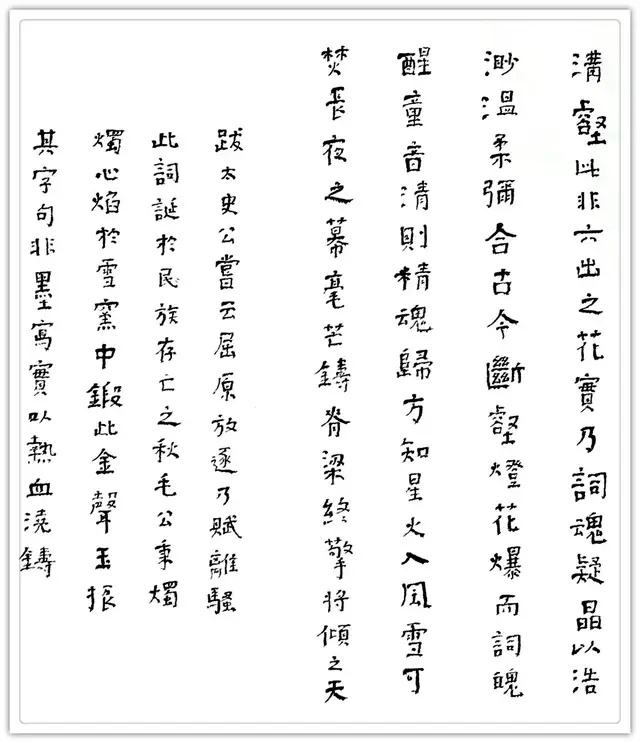 溝壑此非六出之花實乃詞魂凝晶以浩
渺溫柔彌合古今斷壑燈花爆而詞魄
醒童音清則精魂歸方知星火入風雪可
焚長夜之幕毫芒鑄脊梁終擎將傾之天
跋太史公嘗云屈原放逐乃賦離騷
此詞誕於民族存亡之秋毛公秉燭
燭心焰於雪窯中鍛此金聲玉振
其字句非墨寫實以熱血澆鑄